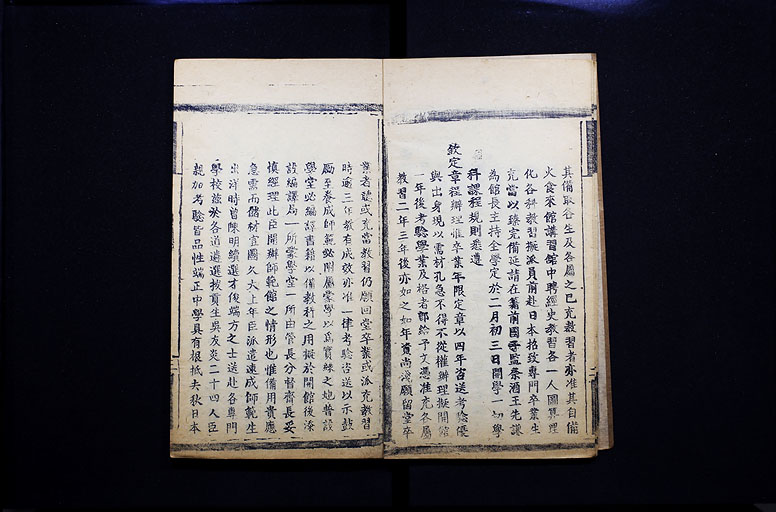 其備取各生及各屬之已充教習者亦准其自備
火食來館講習館中聘經史教習各一人圖算理
化各科教習擬派員前赴日本招致專門卒業生
充當以臻完備延請在籍前國子監祭酒王先謙
為館長主持全學定於二月初三日開學一切學
科課程規則悉遵
欽定章程辦理惟卒業年限定章以四年咨送考驗優
與出身現以需材孔急不得不從權辦理擬開館
一年後考驗學業及格者即給予文憑准充各屬
教習二年三年後亦如之如年資尚淺願留堂卒
業者聽或充當教習仍願回堂卒業或派充教習
時逾三年教有成效亦准一律考驗咨送以示鼓
勵至養成師範必附屬蒙學以為實練之地普設
學堂必編譯書籍以備教科之用擬於開館後添
設編譯局一所蒙學堂一所由管長分督齊長妥
慎經理此臣開辦師範館之情形也惟備用貴應
急需而儲材宜圖久大上年臣派遣速成師範生
出洋時曾陳明續選才俊端方之士送赴各專門
學校茲於各道遴選拔貢生吳友炎二十四人臣
親加考驗皆品性端正中學具有根抵夫狄日本